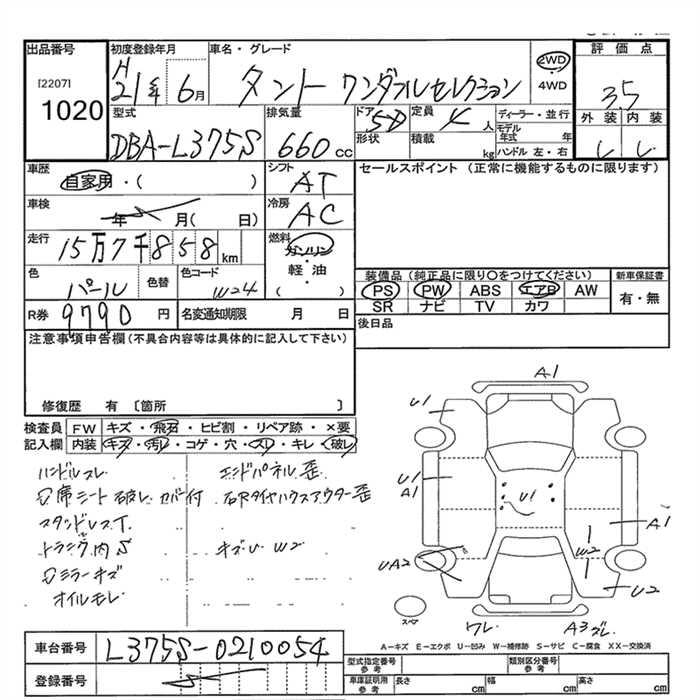 出品番号
[2207]
1020
初度登録年月
H
21年 6月
車名・グレード
タント ワンダフルセレクション
2WD
・
4WD
評価点
3.5
型式
DBA-L375S
排気量
660 cc
ドア
5D
定員
4 人
形状
積載
kg
ディーラー・並行
モデル年式 年
ハンドル 左・右
外装 内装
車歴
自家用・( )
シフト
AT
セールスポイント (正常に機能するものに限ります)
車検
年 月( 日)
冷房
AC
走行
15万7千858 km
燃料
ガソリン
・
軽・油
( )
色
パール
色替
色コード
W24
装備品 (純正品に限り○をつけてください)
新車保証書
PS PW ABS エアB AW
SR ナビ TV カワ
有・無
R券
9790 円
名変通知期限 月 日
後日品
注意事項申告欄 (不具合内容等は具体的に記入して下さい)
修復歴 有 〔箇所 〕
検査員
記入欄
FW キズ・飛石・ヒビ割・リペア跡・×要
内装 キズ・汚レ・コゲ・穴・スレ・キレ・破レ
ハンドルスレ
席シート破レ カバー付
トランク内S
ミラーキズ
オイルモレ
エンドパネル歪
右Rタイヤハウスアウター歪
キズU W2
A1
U1
U1
A1
U1
A1
UA2
W2
U2
ワレ
A3ズレ
スペア
A-キズ E-エクボ U-凹み W-補修跡 S-サビ C-腐食 XX-交換済
車台番号
L375S-0210054
登録番号
型式指定番号
参考
類別区分番号
参考
車庫証明用
参考
長さ cm
幅 cm
高さ cm